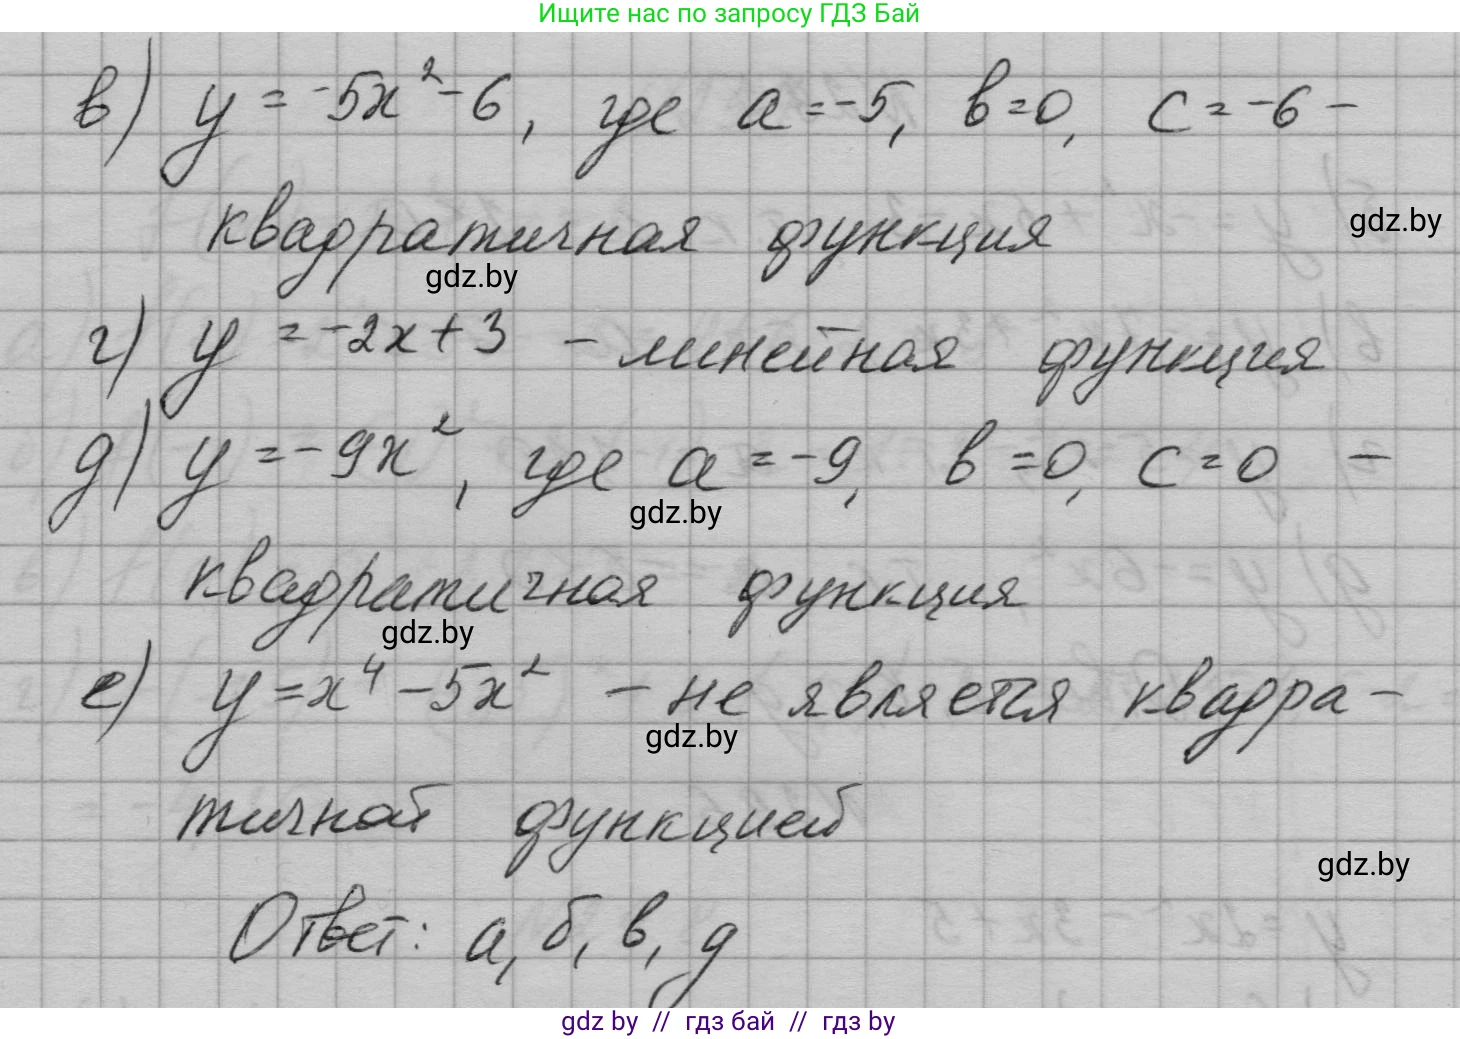 Ищите нас по запросу ГДЗ Бай
в) y = -5x² - 6, где a = -5, в = 0, c = -6 -
квадратичная функция
gdz.by
gdz.by
г) y = -2x + 3 - линейная функция
д) y = -9x², где a = -9, в = 0, c = 0 -
gdz.by
квадратичная функция
gdz.by
е) y = x⁴ - 5x² - не является квадра-
gdz.by
тичной функцией
gdz.by
Ответ: а, б, в, д
gdz by // гдз бай // гдз by